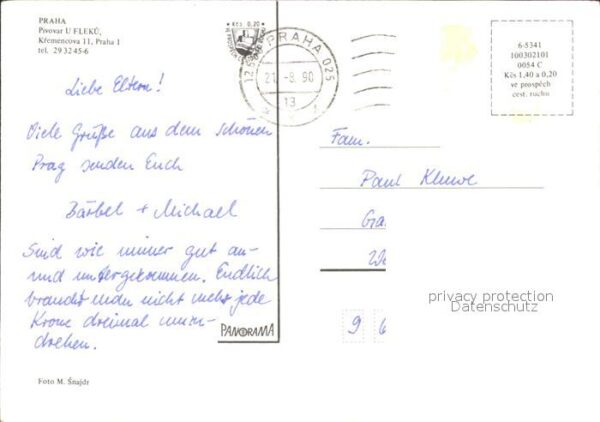 PRAHA
Pivovar U FLEKŮ,
Křemencova 11, Praha 1
tel. 29 32 45-6
Kčs 0,20
PRAHA 025
21.-8.90
13
6-5341
100302101
0054 C
Kčs 1,40 a 0,20
ve prospěch
cest. ruchu
Liebe Eltern!
Viele Grüße aus dem schönen
Prag senden Euch
Bärbel + Michael
Sind wie immer gut an-
und untergekommen. Endlich
braucht man nicht mehr jede
Krone dreimal umzu-
drehen.
Fam.
Paul Kluwe
Ga
9 6
privacy protection
Datenschutz
PANORAMA
Foto M. Šnajdr